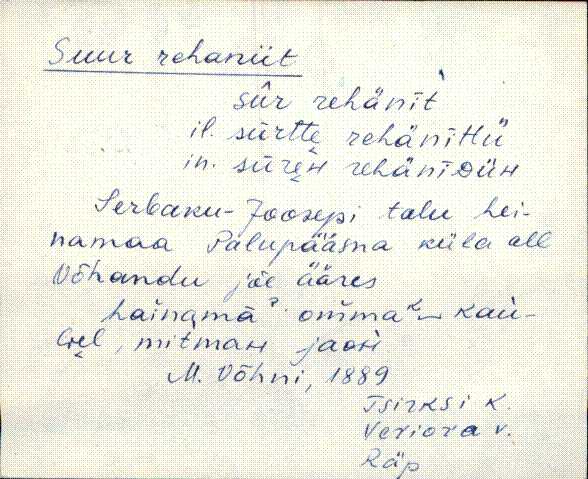 Suur rehaniit
sûr rehänìt̀
il. sūrttę rehänittü
in. sūręʜ rehänīᴅüʜ
Serbaku-Joosepi talu hei-
namaa Palupääsna küla all
Võhandu jõe ääres
hainamāˀ omma kau-
, mitmaʜ jaoʜ
M. Võhni, 1889
Tsirksi k.
Veriora v.
Räp